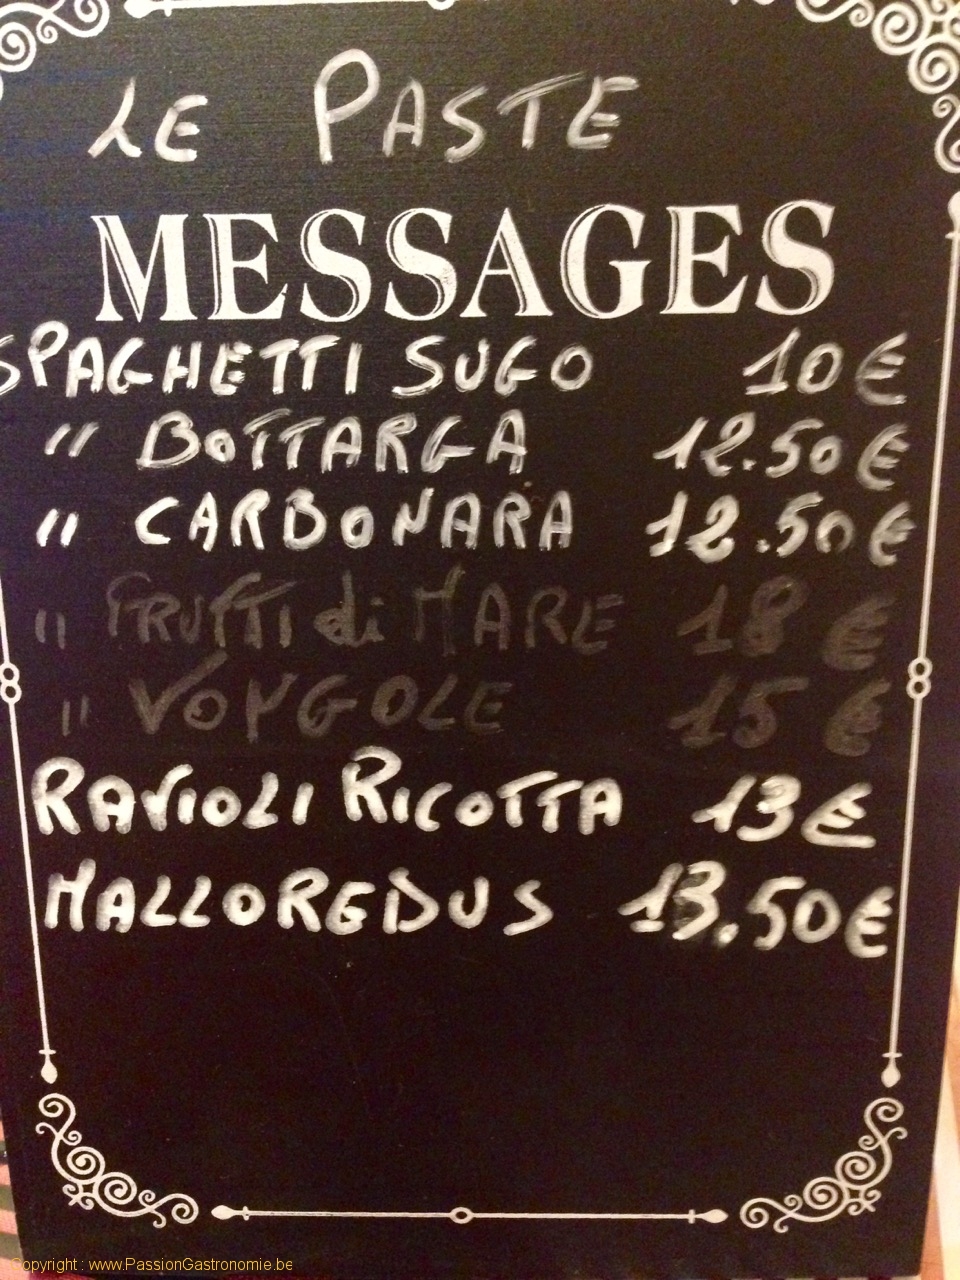 Le PASTE
MESSAGES
SPAGHETTI SUGO 10 €
" BOTTARGA 12.50 €
" CARBONARA 12.50 €
" FRUTTI di MARE 18 €
" VONGOLE 15 €
RAVIOLI RICOTTA 13 €
MALLOREDUS 13.50 €
Copyright : www.PassionGastronomie.be